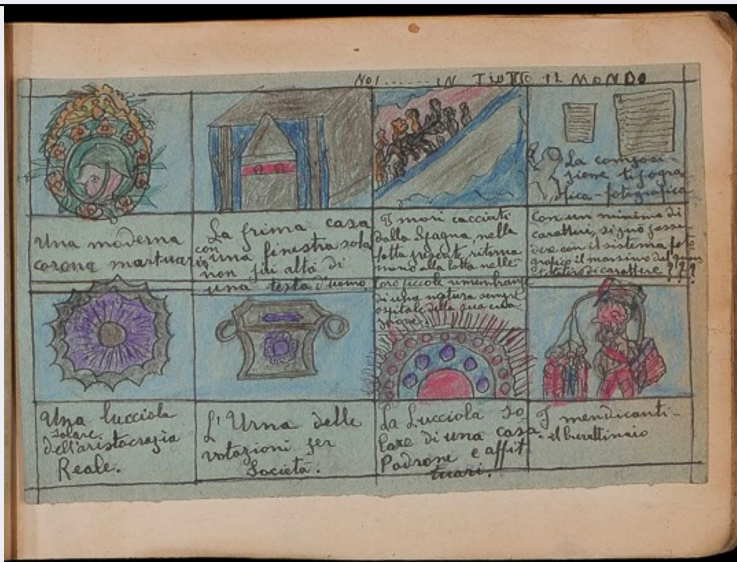 NOI...... IN TUTTO IL MONDO
La composi-
zione tipogra
fica-fotografica
Una moderna
corona mortuaria
La prima casa
con una finestra sola
non più alta di
una testa d'uomo
I mori cacciati
dalla Spagna, nella
lotta presente ritorna
alla lotta nelle
loro piccole rimembranze
di una natura
ospitale della sua
Con un minimo di
caratteri, si può posse-
dere con il sistema foto
grafico il massimo del
di carattere ???
Una lucciola
solare
dell'aristocrazia
Reale.
L'Urna delle
votazioni per
Società.
La Lucciola So
lare di una casa
Padrone e affit
tuari.
I mendicanti-
il burattinaio